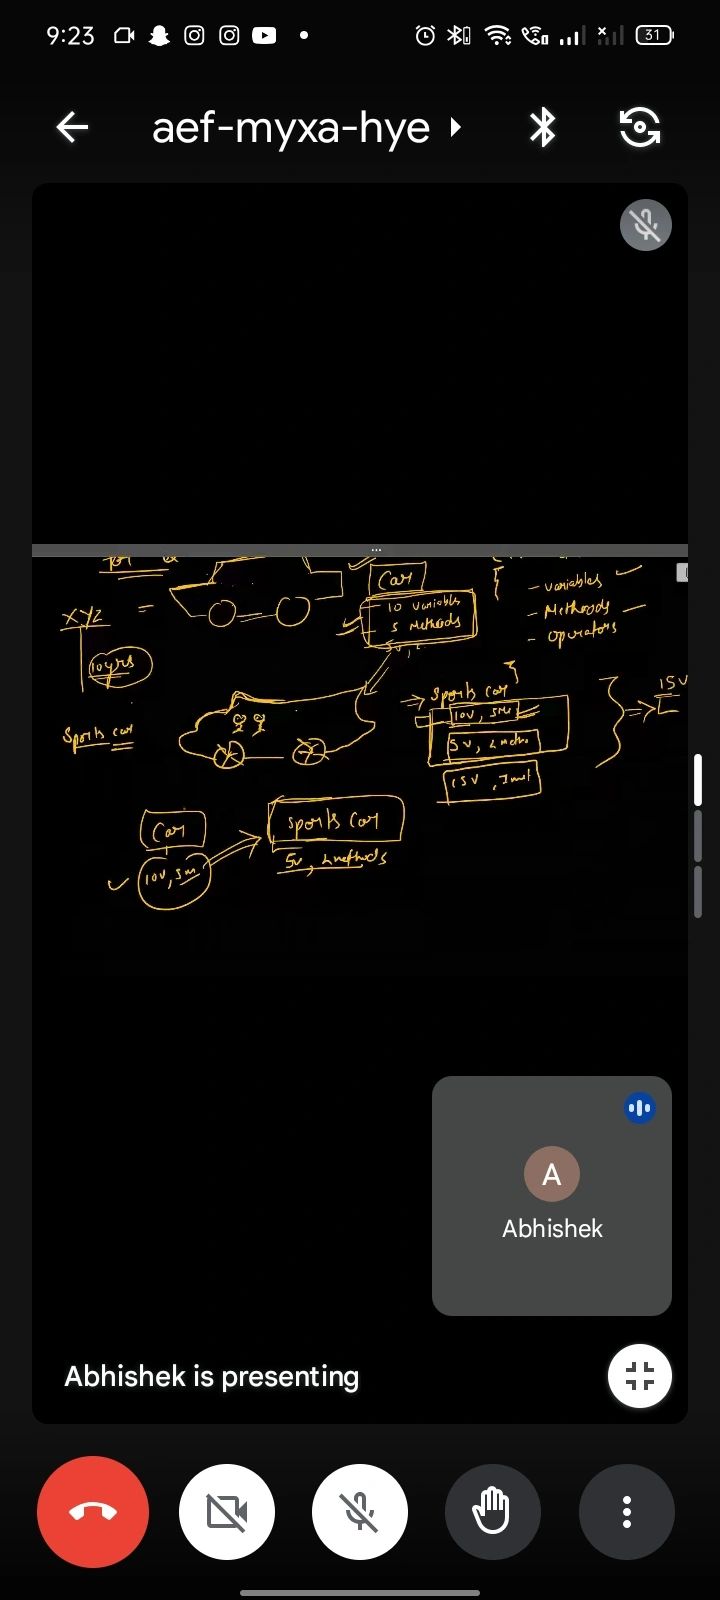 9:23
31
aef-myxa-hye
Car
10 variables
5 Methods
- variables
- Methods
- operators
XYZ =
10yrs
Sports car
Sports car
10V, 5M
5V, 2 Metho
15V
15V, 7met
Car
Sports Car
10V, 5m
5v, 2methods
A
Abhishek
Abhishek is presenting